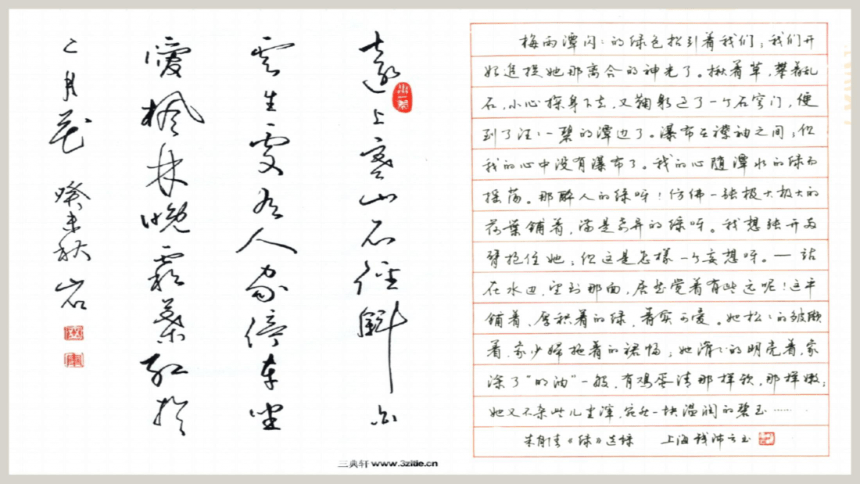 遠上寒山石徑斜白
雲生處有人家停車坐
愛楓林晚霜葉紅於
二月花 癸未秋 岩
梅雨潭闪闪的绿色招引着我们,我们开
始追捉她那离合的神光了。揪着草,攀着乱
石,小心探身下去,又鞠躬过了一个石穹门,便
到了汪汪一碧的潭边了。瀑布在襟袖之间,但
我的心中没有瀑布了。我的心随潭水的绿而
摇荡。那醉人的绿呀!仿佛一张极大极大的
荷葉铺着,满是奇异的绿呀。我想张开两
臂抱住她,但这是怎樣一个妄想呀。—站
在水边,望到那面,居然觉着有些远呢!这平
铺着、厚积着的绿,着实可爱。她松松的皱缬
着,象少婦拖着的裙幅;她滑滑的明亮着,象
涂了“明油”一般,有鸡蛋清那样软,那样嫩;
她又不杂些儿尘滓,宛然一块温润的碧玉……
朱自清《绿》选録 上海钱沛云书
三典轩 www.3zitie.cn